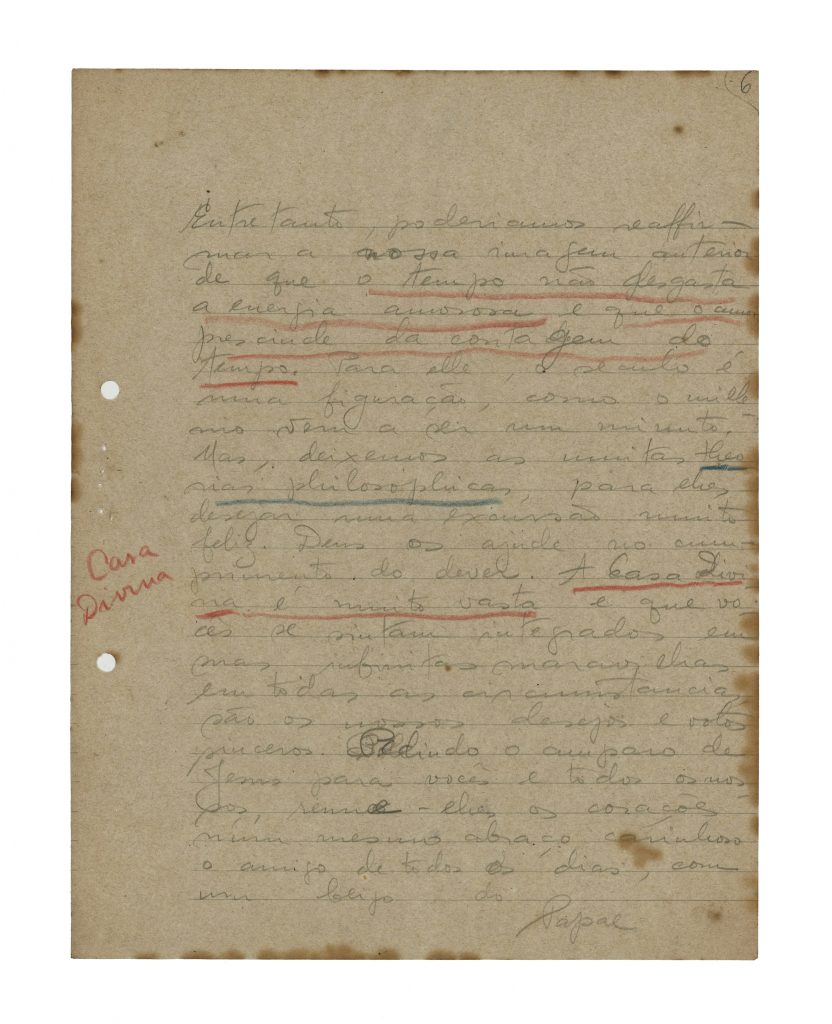 6
Entretanto, poderiamos reaffir-
mar a nossa imagem anterior
de que o tempo não desgasta
a energia amorosa e que o amor
prescinde da contagem do
tempo. Para elle, o seculo é
uma figuração, como o mille-
nio vem a ser um minuto.
Mas, deixemos as muitas theo
rias philosophicas, para lhes
desejar uma excursão muito
feliz. Deus os ajude no cum-
primento do dever. A Casa Divi
na é muito vasta e que vo-
cês se sintam integrados em
suas infinitas maravilhas
em todas as circumstancias,
são os nossos desejos e votos
sinceros. Pedindo o amparo de
Jesus para vocês e todos os nos-
sos, reune-lhes os corações
num mesmo abraço carinhoso
o amigo de todos os dias, com
um beijo do
Papae
Casa
Divina